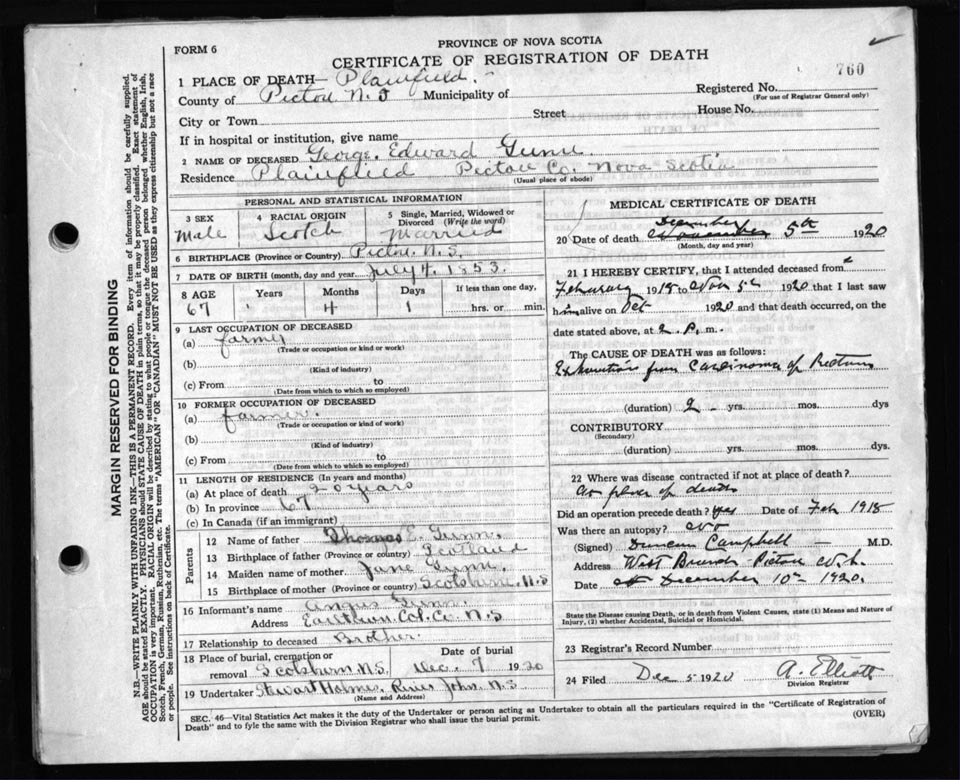 FORM 6
PROVINCE OF NOVA SCOTIA
CERTIFICATE OF REGISTRATION OF DEATH
760
1 PLACE OF DEATH— Plainfield.
County of Pictou N.S Municipality of
Registered No.
(For use of Registrar General only)
City or Town Street House No.
If in hospital or institution, give name
2 NAME OF DECEASED George. Edward Gunn.
Residence Plainflied Pictou Co. Nova Scotia
(Usual place of abode)
PERSONAL AND STATISTICAL INFORMATION
3 SEX
Male
4 RACIAL ORIGIN
Scotch
5 Single, Married, Widowed or
Divorced (Write the word)
Married
6 BIRTHPLACE (Province or Country) Pictou. N.S.
7 DATE OF BIRTH (month, day and year) July 4. 1853.
8 AGE Years Months Days If less than one day,
67 4 1 hrs. or min.
9 LAST OCCUPATION OF DECEASED
(a) farmer
(Trade or occupation or kind of work)
(b)
(Kind of industry)
(c) From to
(Date from which to which so employed)
10 FORMER OCCUPATION OF DECEASED
(a) farmer.
(Trade or occupation or kind of work)
(b)
(Kind of industry)
(c) From to
(Date from which to which so employed)
11 LENGTH OF RESIDENCE (In years and months)
(a) At place of death 20 years
(b) In province 67
(c) In Canada (if an immigrant)
Parents
12 Name of father Thomas E. Gunn.
13 Birthplace of father (Province or country) Scotland
14 Maiden name of mother Jane Gunn.
15 Birthplace of mother (Province or country) N.S
16 Informant's name Angus Gunn.
Address Earltown Col. Co. N.S
17 Relationship to deceased Brother.
18 Place of burial, cremation or
removal N.S. Dec. 7 1920
19 Undertaker Stewart Holmes, River John. N.S
(Name and Address)
MEDICAL CERTIFICATE OF DEATH
December
20 Date of death 5th 1920
(Month, day and year)
21 I HEREBY CERTIFY, that I attended deceased from
February 1918 to Nov 1920 that I last saw
him alive on Oct 1920 and that death occurred, on the
date stated above, at 2. P. m.
The CAUSE OF DEATH was as follows:
Exhaustion from Carcinoma of Rectum
(duration) 2 - yrs. mos. dys
CONTRIBUTORY
(Secondary)
(duration) yrs. mos. dys.
22 Where was disease contracted if not at place of death?
At place of death
Did an operation precede death? yes Date of Feb 1918
Was there an autopsy? No
(Signed) Duncan Campbell — M.D.
Address West Branch Pictou
Date December 10th 1920.
State the Disease causing Death, or in death from Violent Causes, state (1) Means and Nature of
Injury, (2) whether Accidental, Suicidal or Homicidal.
23 Registrar's Record Number
24 Filed Dec 5 1920 A. Elliott
Division Registrar
SEC. 46—Vital Statistics Act makes it the duty of the Undertaker or person acting as Undertaker to obtain all the particulars required in the "Certificate of Registration of
Death" and to fyle the same with the Division Registrar who shall issue the burial permit.
(OVER)
MARGIN RESERVED FOR BINDING
N.B.—WRITE PLAINLY WITH UNFADING INK—THIS IS A PERMANENT RECORD. Every item of information should be carefully supplied.
AGE should be stated EXACTLY. PHYSICIANS should STATE CAUSE OF DEATH in plain terms, so that it may be properly classified. Exact statement of
OCCUPATION is very important. RACIAL ORIGIN will be described by stating to what people or tongue the deceased person belonged whether English, Irish,
Scotch, French, German, Russian, Ruthenian, etc. The terms "AMERICAN" OR "CANADIAN" MUST NOT BE USED as they express citizenship but not a race
or people. See instructions on back of Certificate.